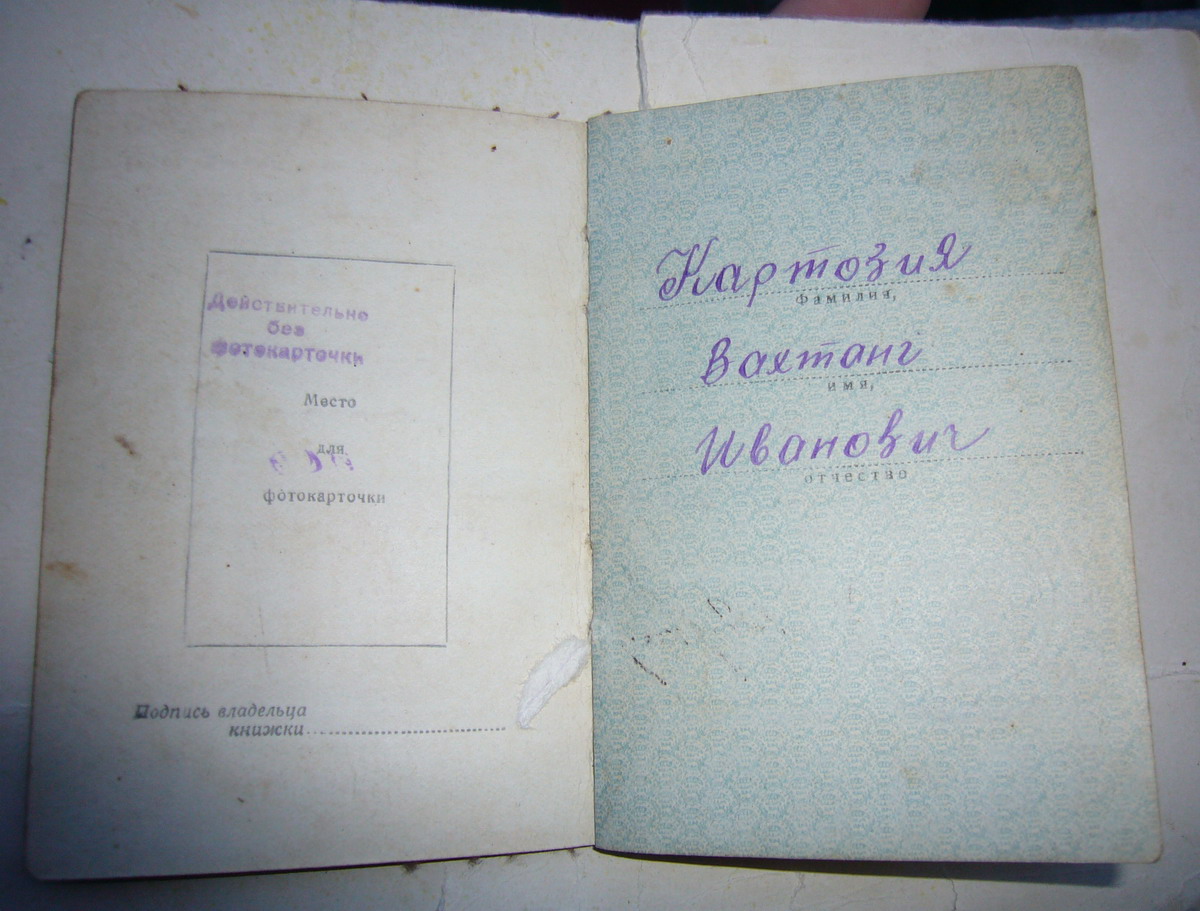 Действительно
без
фотокарточки
Место
для
фотокарточки
Подпись владельца
книжки
Картозия
фамилия,
Вахтанг
имя,
Иванович
отчество